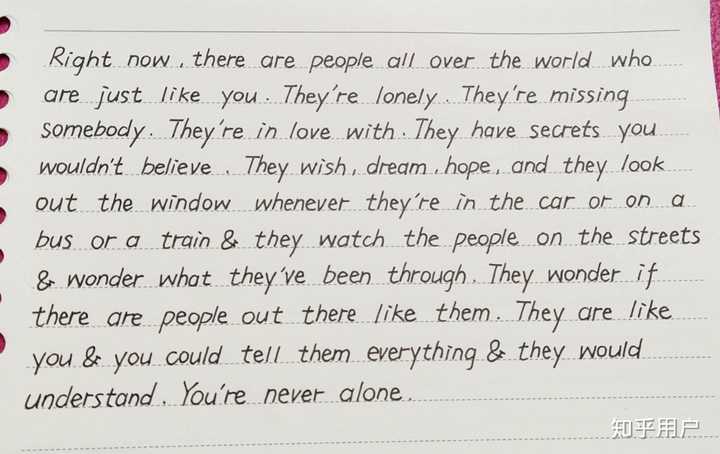 Right now, there are people all over the world who
are just like you. They're lonely. They're missing
somebody. They're in love with. They have secrets you
wouldn't believe. They wish, dream, hope, and they look
out the window whenever they're in the car or on a
bus or a train & they watch the people on the streets
& wonder what they've been through. They wonder if
there are people out there like them. They are like
you & you could tell them everything & they would
understand. You're never alone.
知乎用户